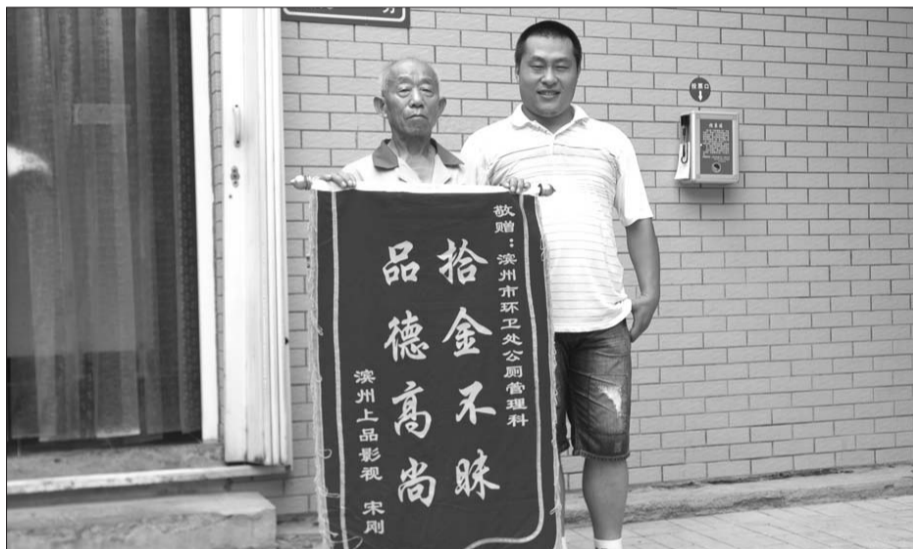 敬赠：滨州市环卫处公厕管理科
拾金不昧
品德高尚
滨州上品影视 宋刚
投票口